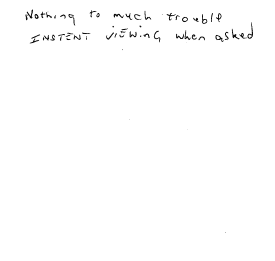 Nothing to much trouble
INSTENT VIEWING when asked